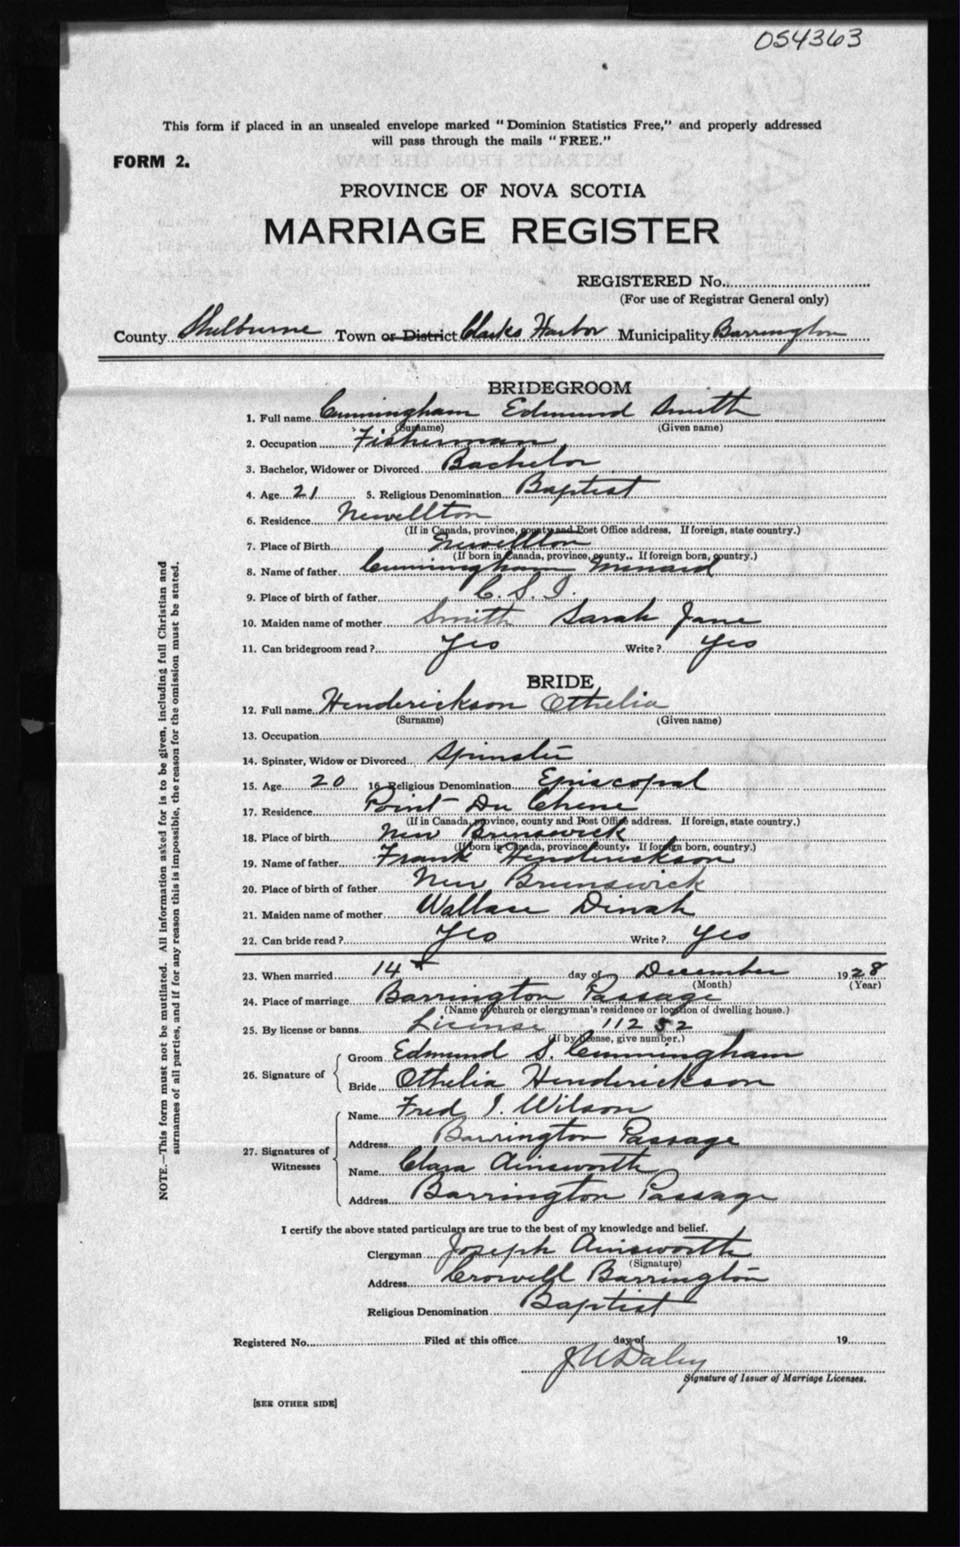 054363
This form if placed in an unsealed envelope marked "Dominion Statistics Free," and properly addressed
will pass through the mails "FREE."
FORM 2.
PROVINCE OF NOVA SCOTIA
MARRIAGE REGISTER
REGISTERED No.
(For use of Registrar General only)
County Shelburne Town or District Clarks Harbor Municipality Barrington
BRIDEGROOM
1. Full name Cunningham Edmund Smith
(Surname) (Given name)
2. Occupation Fisherman
3. Bachelor, Widower or Divorced Bachelor
4. Age 21 5. Religious Denomination Baptist
6. Residence Newellton
(If in Canada, province, county and Post Office address. If foreign, state country.)
7. Place of Birth Newellton
(If born in Canada, province, county. If foreign born, country.)
8. Name of father Cunningham
9. Place of birth of father C. S. I.
10. Maiden name of mother Smith Sarah Jane
11. Can bridegroom read? Yes Write? Yes
BRIDE
12. Full name Henderickson Othelia
(Surname) (Given name)
13. Occupation
14. Spinster, Widow or Divorced Spinster
15. Age 20 16 Religious Denomination Episcopal
17. Residence Point Du Chene
(If in Canada, province, county and Post Office address. If foreign, state country.)
18. Place of birth New Brunswick
(If born in Canada, province, county. If foreign born, country.)
19. Name of father Frank Henderickson
20. Place of birth of father New Brunswick
21. Maiden name of mother Wallace Dinah
22. Can bride read? Yes Write? Yes
23. When married 14 day of December 1928
(Month) (Year)
24. Place of marriage Barrington Passage
(Name of church or clergyman's residence or location of dwelling house.)
25. By license or banns License 11252
(If by license, give number.)
26. Signature of Groom Edmund S. Cunningham
Bride Othelia Henderickson
27. Signatures of Witnesses Name Fred I. Wilson
Address Barrington Passage
Name Clara Ainsworth
Address Barrington Passage
I certify the above stated particulars are true to the best of my knowledge and belief.
Clergyman Joseph Ainsworth
(Signature)
Address Crowell Barrington
Religious Denomination Baptist
Registered No. Filed at this office day of 19
Daley
Signature of Issuer of Marriage Licenses.
[SEE OTHER SIDE]
NOTE.—This form must not be mutilated. All information asked for is to be given, including full Christian and
surnames of all parties, and if for any reason this is impossible, the reason for the omission must be stated.